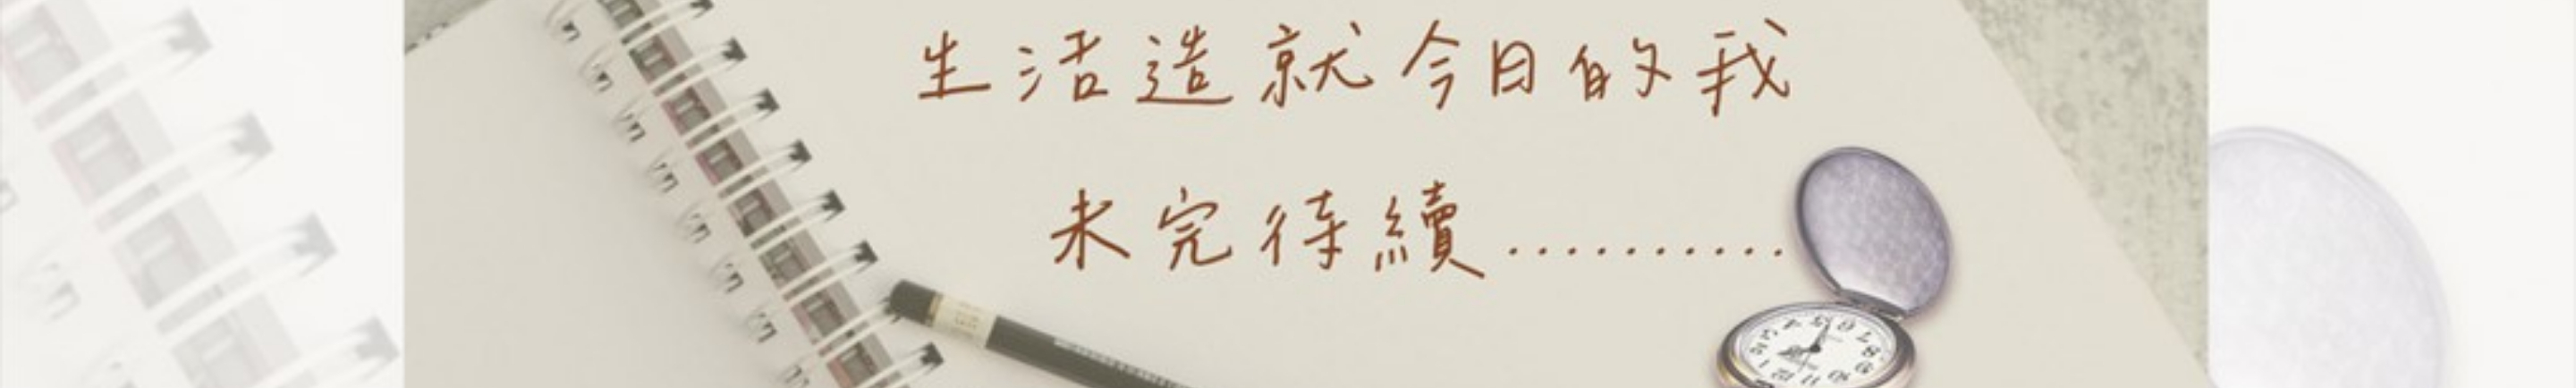 生活造就今日的我
未完待續..........